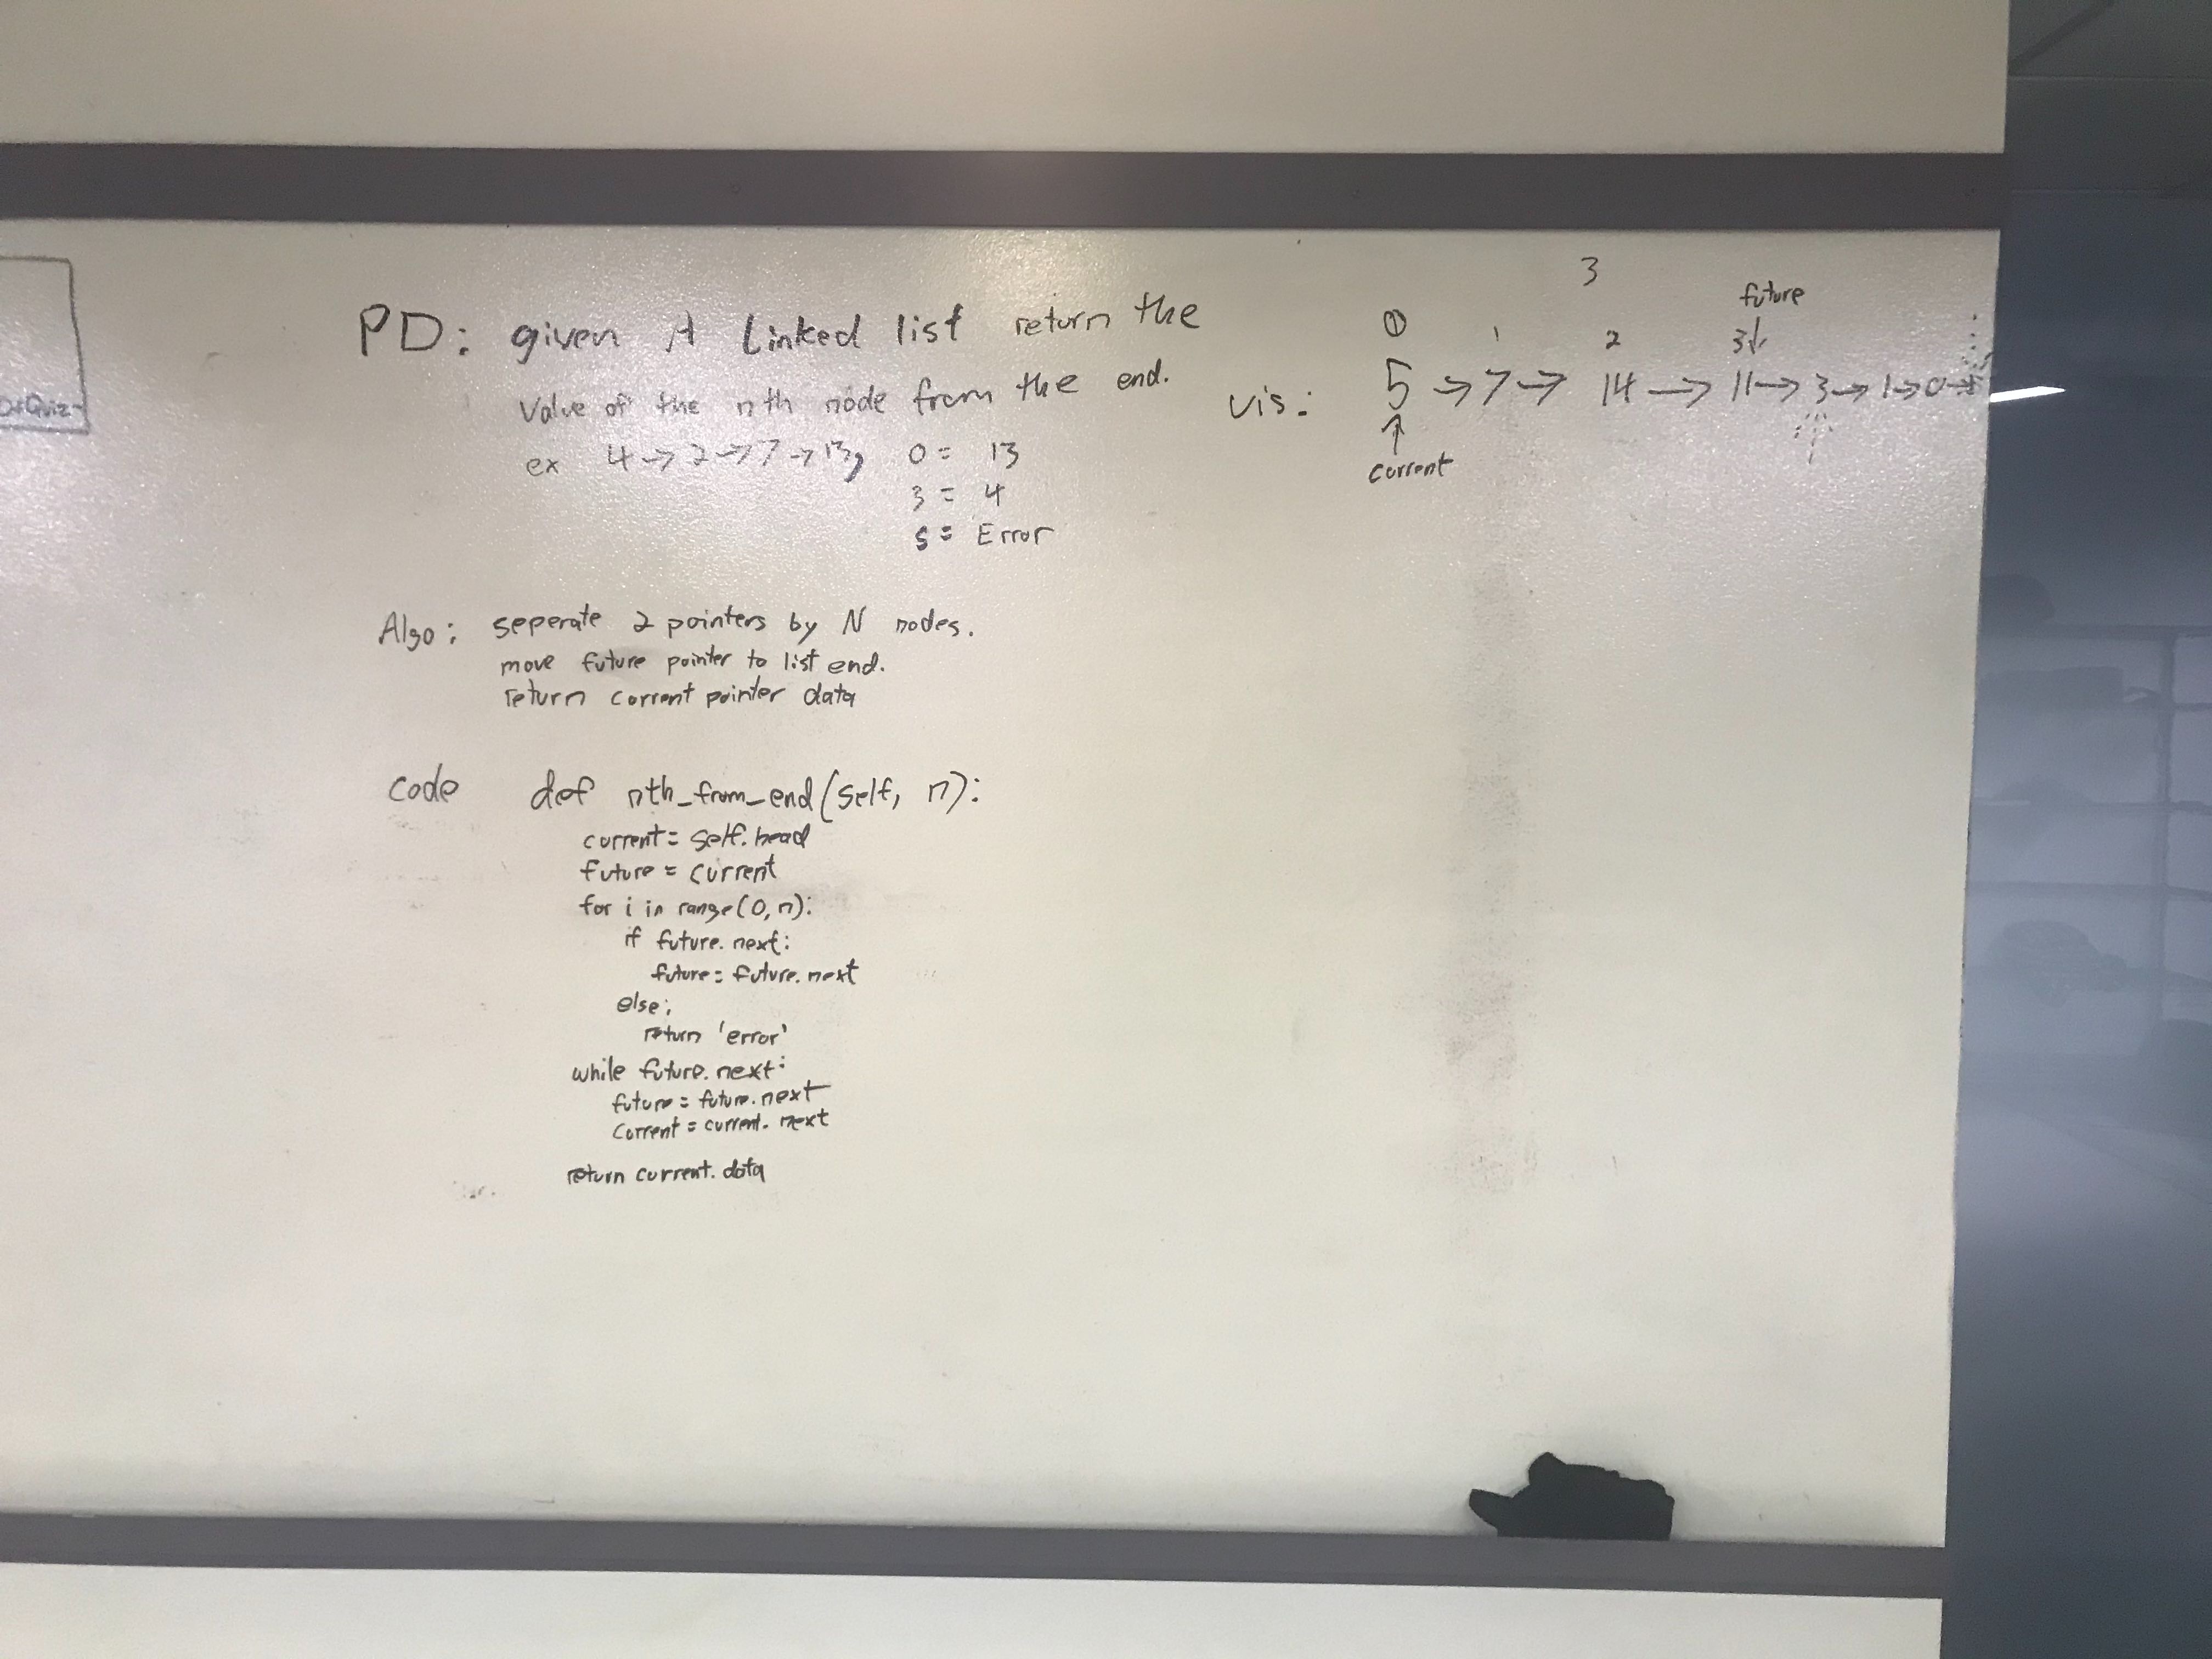 PD: given A Linked list return the
Value of the nth node from the end.
ex 4 → 2 → 7 → 13, 0 = 13
3 = 4
5 = Error
Algo: seperate 2 pointers by N nodes.
move future pointer to list end.
return current pointer data
code def nth_from_end(self, n):
current = self.head
future = current
for i in range(0, n):
if future.next:
future = future.next
else:
return 'error'
while future.next:
future = future.next
current = current.next
return current.data
3
future
0 1 2 3↓
vis: 5 → 7 → 14 → 11 → 3 → 1 → 0 →
↑
current
Quiz